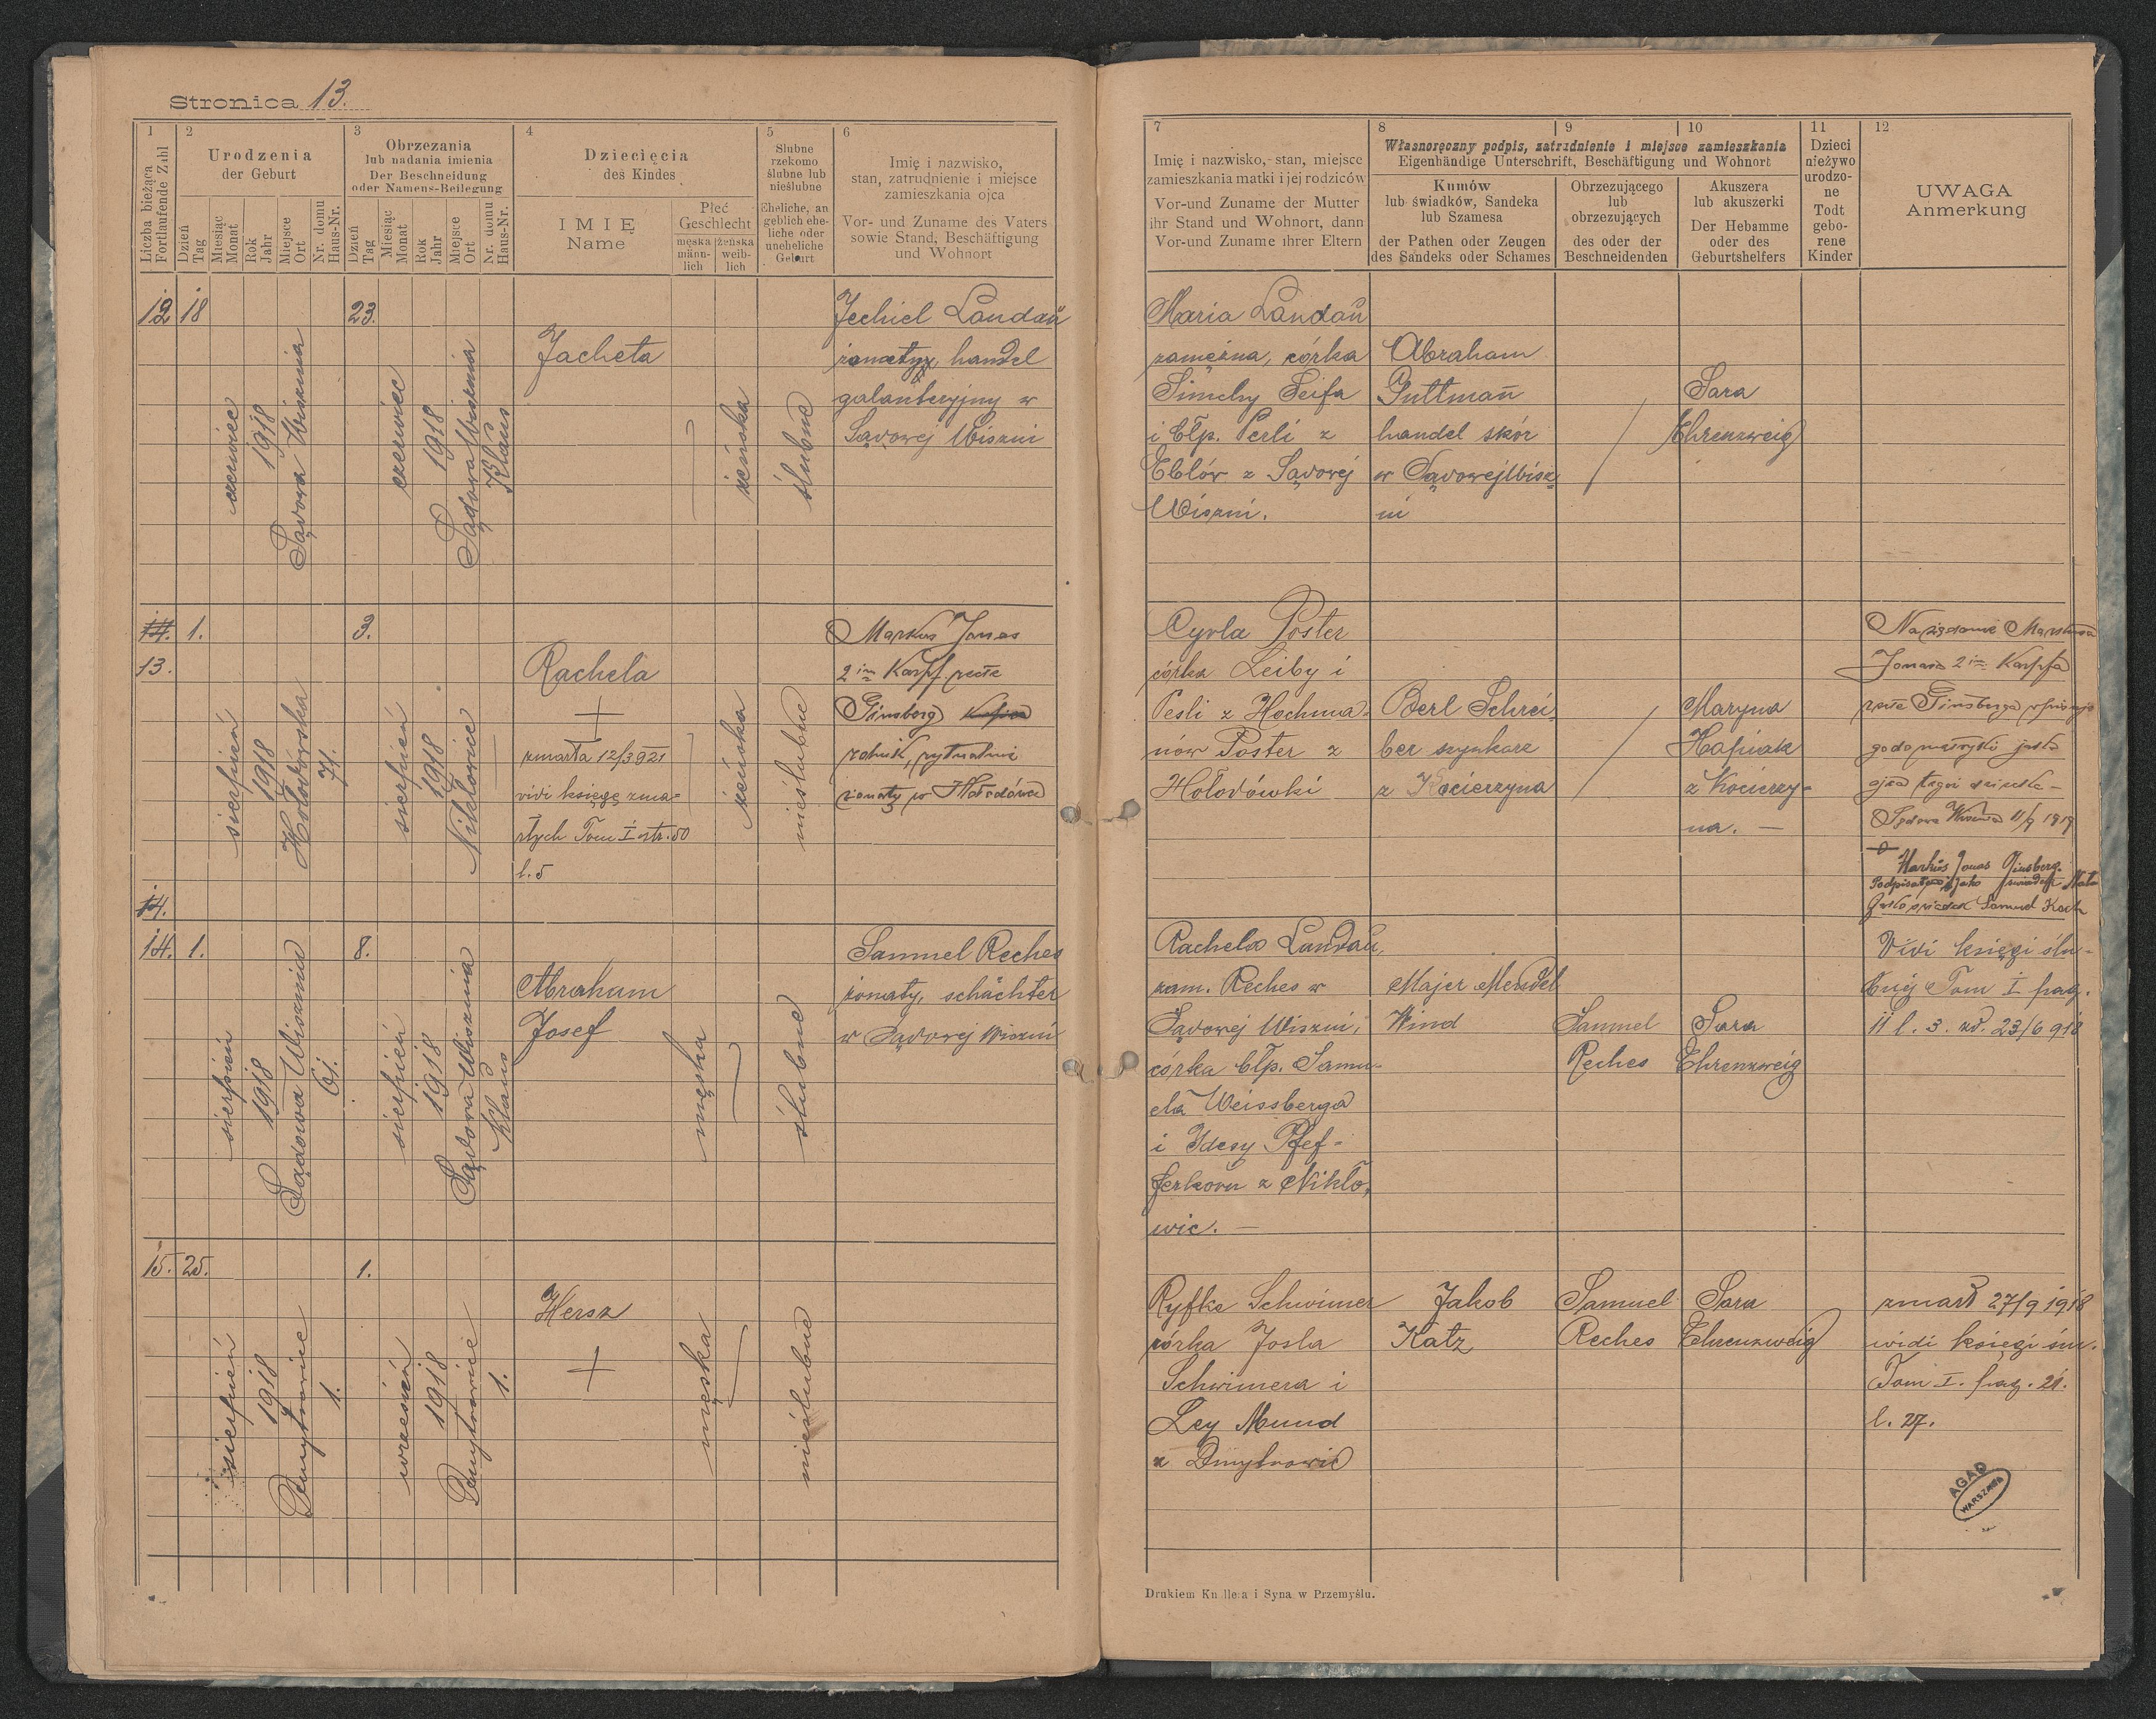 Stronica 13.
1
Liczba bieżąca
Fortlaufende Zahl
2
Urodzenia
der Geburt
Dzień
Tag
Miesiąc
Monat
Rok
Jahr
Miejsce
Ort
Nr. domu
Haus-Nr.
3
Obrzezania
lub nadania imienia
Der Beschneidung
oder Namens-Beilegung
Dzień
Tag
Miesiąc
Monat
Rok
Jahr
Miejsce
Ort
Nr. domu
Haus-Nr.
4
Dziecięcia
des Kindes
IMIĘ
Name
Płeć
Geschlecht
męska
männ-
lich
żeńska
weib-
lich
5
Ślubne
rzekomo
ślubne lub
nieślubne
Eheliche, an
geblich ehe-
liche oder
uneheliche
Geburt
6
Imię i nazwisko,
stan, zatrudnienie i miejsce
zamieszkania ojca
Vor- und Zuname des Vaters
sowie Stand, Beschäftigung
und Wohnort
7
Imię i nazwisko, stan, miejsce
zamieszkania matki i jej rodziców
Vor-und Zuname der Mutter
ihr Stand und Wohnort, dann
Vor-und Zuname ihrer Eltern
8
9
10
Własnoręczny podpis, zatrudnienie i miejsce zamieszkania
Eigenhändige Unterschrift, Beschäftigung und Wohnort
Kumów
lub świadków, Sandeka
lub Szamesa
der Pathen oder Zeugen
des Sandeks oder Schames
Obrzezującego
lub
obrzezujących
des oder der
Beschneidenden
Akuszera
lub akuszerki
Der Hebamme
oder des
Geburtshelfers
11
Dzieci
nieżywo
urodzo-
ne
Todt
gebo-
rene
Kinder
12
UWAGA
Anmerkung
12
18
czerwiec
1918
Sądowa Wisznia
23.
czerwiec
1918
Sądowa Wisznia
Klaus
Jacheta
żeńska
ślubne
Jechiel Landau
żonaty, handel
galanteryjny w
Sądowej Wiszni
Maria Landau
zamężna, córka
Simchy Seifa
i błp. Perli z
Eblów z Sądowej
Wiszni.
Abraham
Guttman
handel skór
w Sądowej Wisz-
ni
Sara
Ehrenzweig
14.
13.
1.
sierpień
1918
Hołodówska
71.
3.
sierpień
1918
Nikłowice
Rachela
zmarła 12/3 921
vidi księgę zma-
rłych Tom I str. 50
l. 5
żeńska
nieślubne
Markus Jonas
2 im Karpf recte
Ginsberg
rolnik, rytualnie
żonaty w Hołodówce
Cyrla Poster
córka Leiby i
Pesli z Hochma-
nów Poster z
Hołodówki
Berl Schrei-
ber szynkarz
z Kocierzyna
Maryna
Hafiniak
z Kocierzy-
na.
Na żądanie Markusa
Jonasa 2 im Karpfa
recte Ginsberga
ojca
Sądowa Wisznia 11/9 1919
Markus Jonas Ginsberg
Samuel Koch
14.
14.
1.
sierpień
1918
Sądowa Wisznia
61.
8.
sierpień
1918
Sądowa Wisznia
Klaus
Abraham
Josef
męska
ślubne
Samuel Reches
żonaty, schächter
w Sądowej Wiszni
Rachela Landau,
zam. Reches w
Sądowej Wiszni,
córka błp. Samu-
ela Weissberga
i Idesy Pfef-
ferkorn z Nikło-
wic.
Majer Mendel
Wind
Samuel
Reches
Sara
Ehrenzweig
Vidi księgi ślu-
bnej Tom I pag.
11 l. 3. zd. 23/6 918
15.
25.
sierpień
1918
Dmytrowice
1.
1.
wrzesień
1918
Dmytrowice
1.
Hersz
męska
nieślubne
Ryfke Schwimer
córka Josla
Schwimera i
Ley Mund
z Dmytrowic
Jakob
Katz
Samuel
Reches
Sara
Ehrenzweig
zmarł 27/9 1918
widi księgi śm.
Tom I. pag. 21.
l. 27.
AGAD
WARSZAWA
Drukiem Knollera i Syna w Przemyślu.